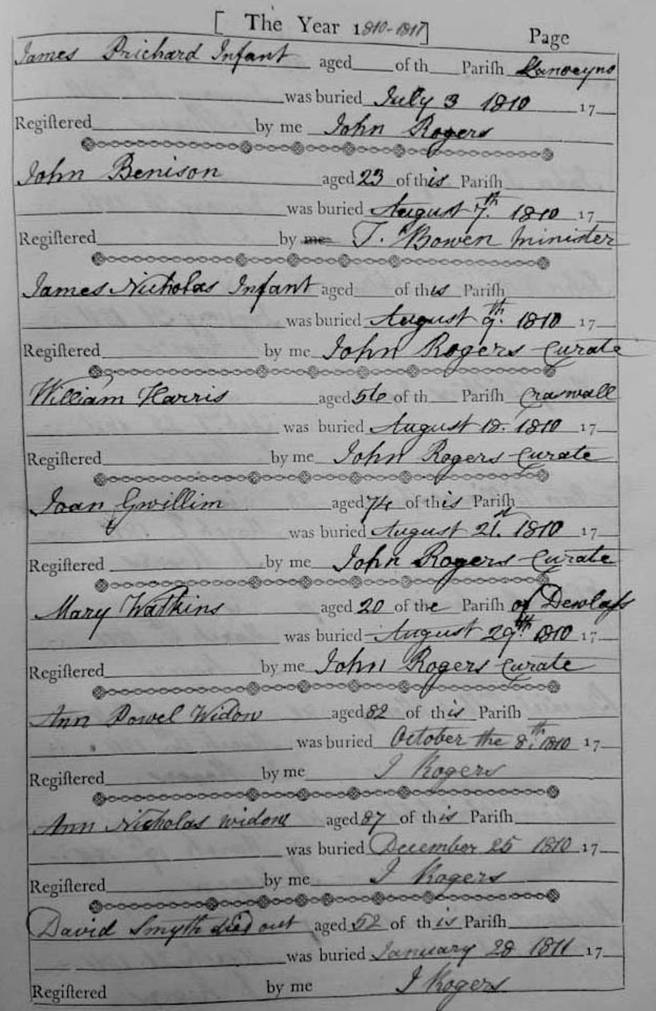 [ The Year 1810-1817] Page
James Prichard Infant aged of th Pariſh Llanveyno
was buried July 3 1810 17
Regiſtered by me John Rogers
John Benison aged 23 of this Pariſh
was buried August 7th. 1810 17
Regiſtered by me T. Bowen minister
James Nicholas Infant aged of this Pariſh
was buried August 9th. 1810 17
Regiſtered by me John Rogers Curate
William Harris aged 56 of th Pariſh Craswall
was buried August 18. 1810 17
Regiſtered by me John Rogers Curate
Joan Gwillim aged 74 of this Pariſh
was buried August 21st. 1810 17
Regiſtered by me John Rogers Curate
Mary Watkins aged 20 of the Pariſh of Dewlaſs
was buried August 29th. 1810 17
Regiſtered by me John Rogers Curate
Ann Powel Widow aged 82 of this Pariſh
was buried October the 8th. 1810 17
Regiſtered by me J Rogers
Ann Nicholas widow aged 87 of this Pariſh
was buried December 25 1810 17
Regiſtered by me J Rogers
David Smyth died out aged 52 of this Pariſh
was buried January 28 1811 17
Regiſtered by me J Rogers